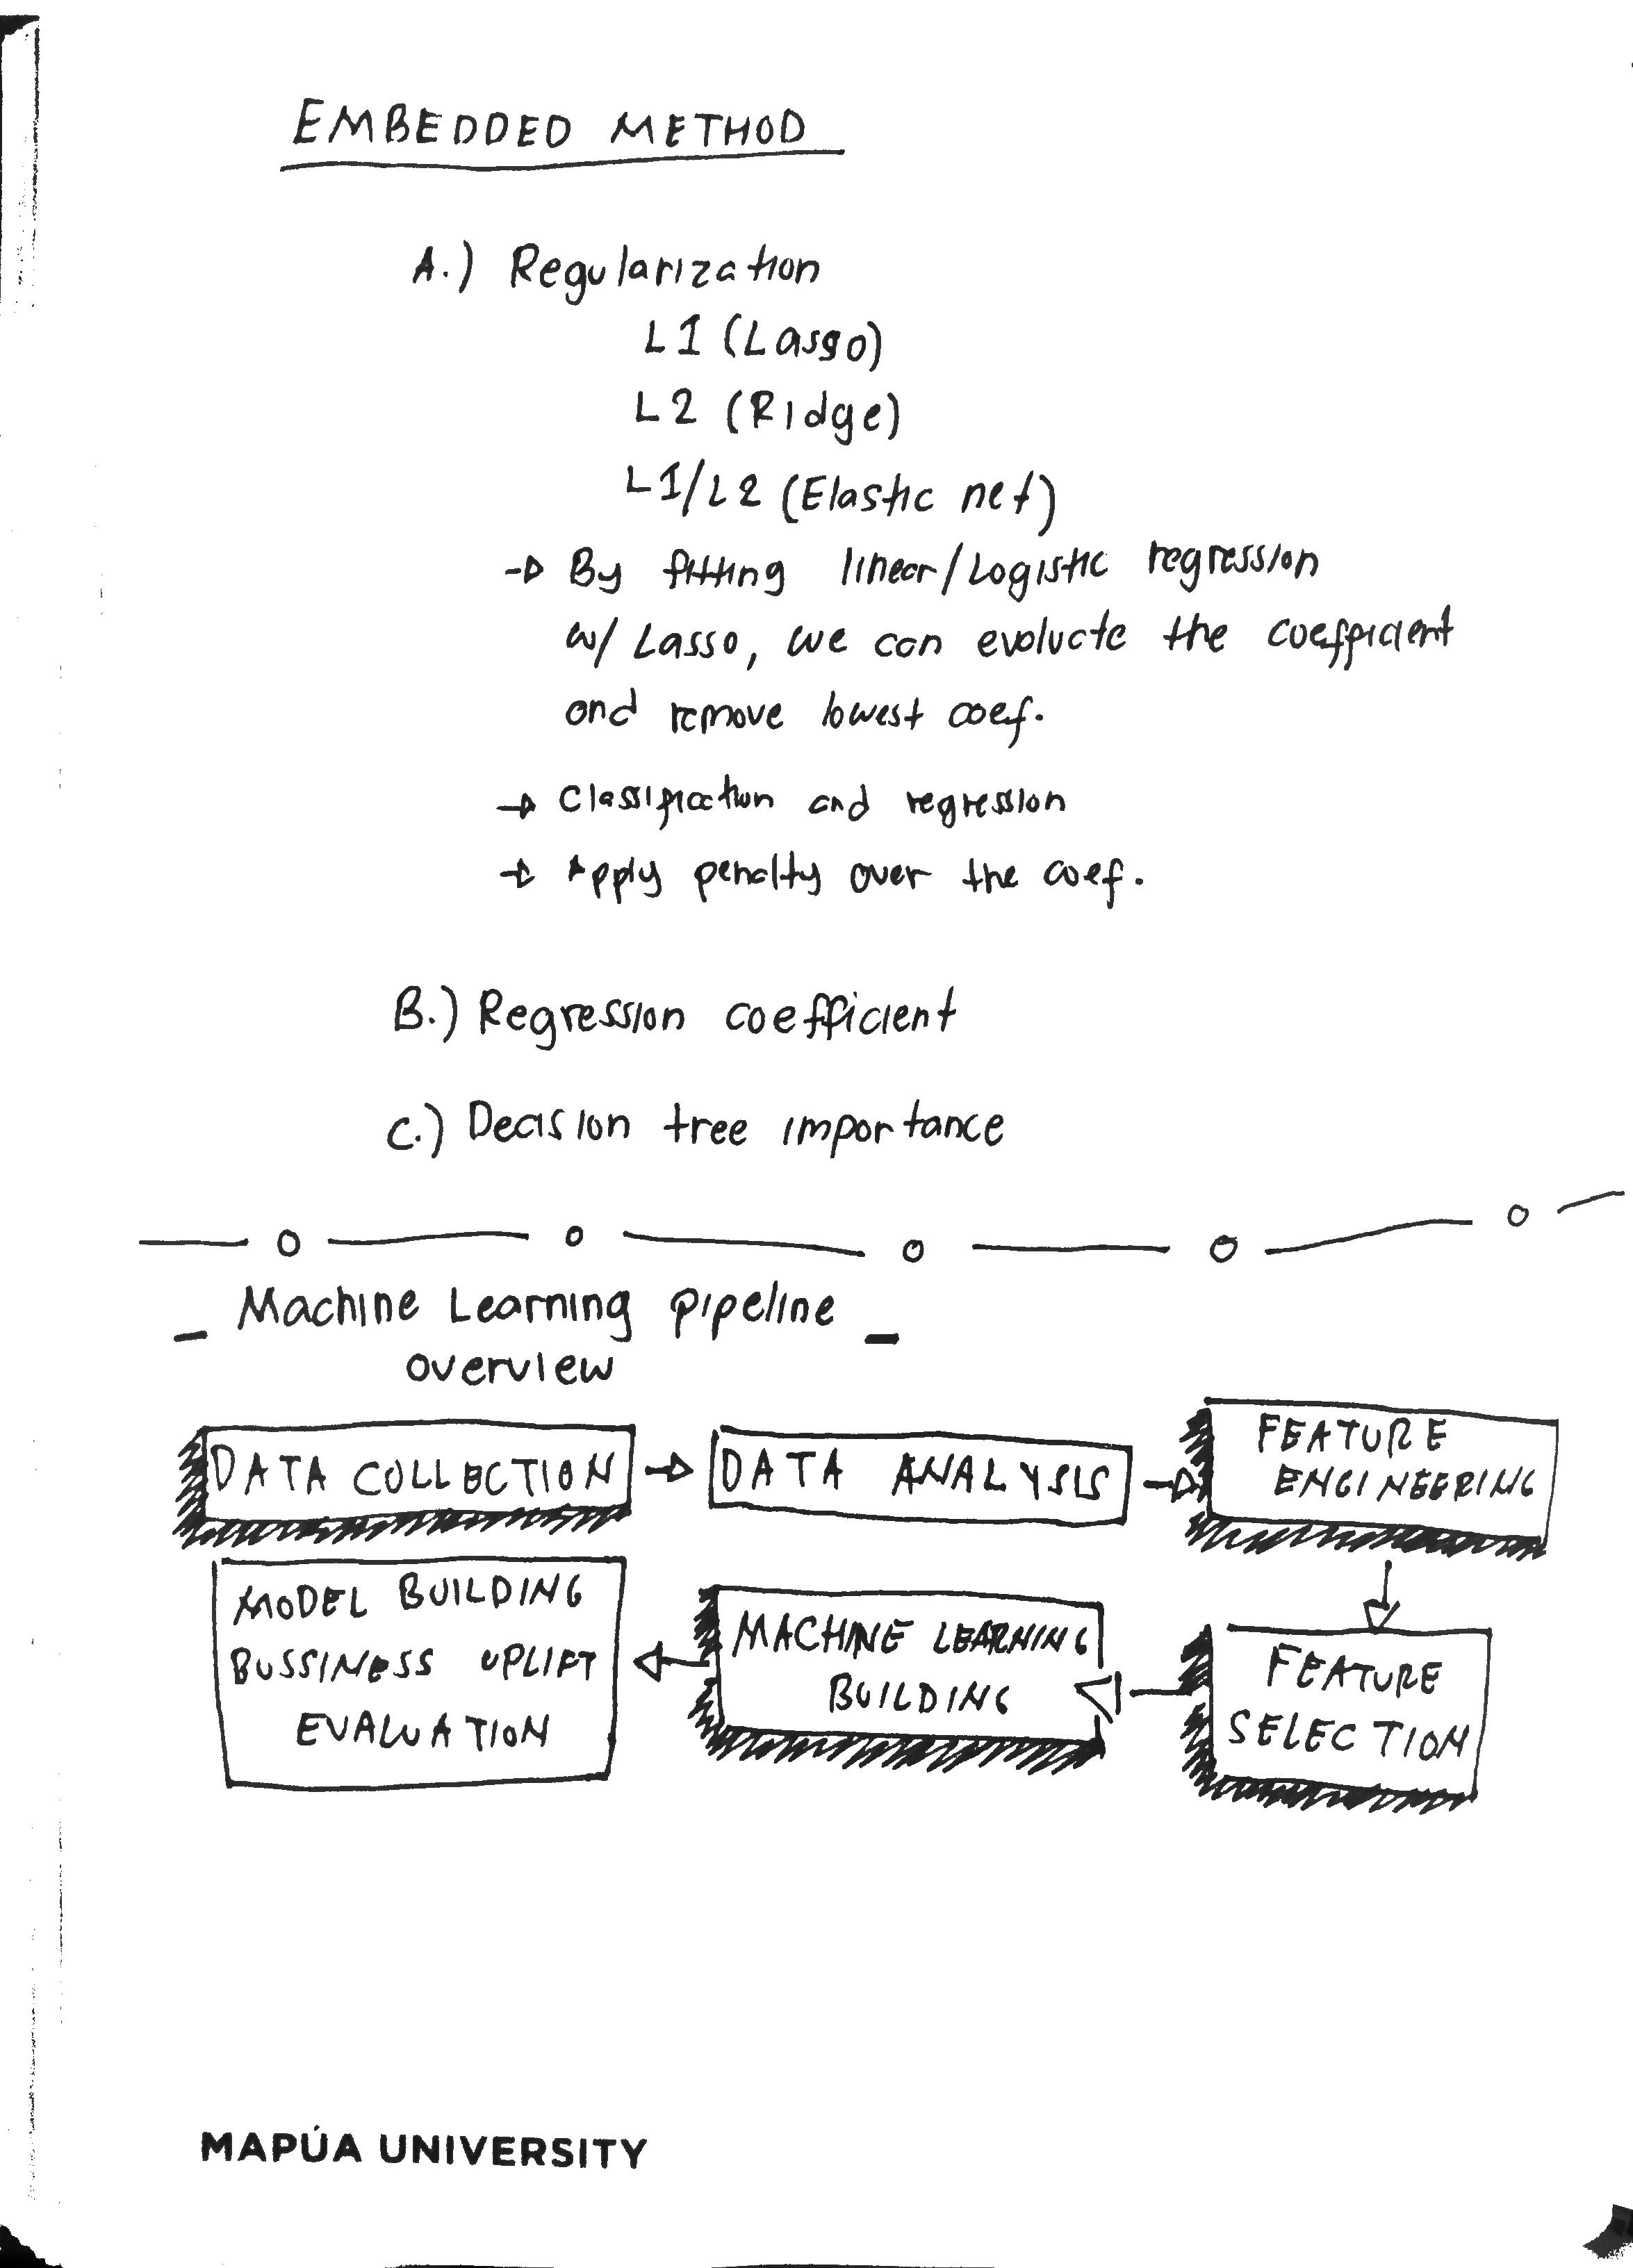 EMBEDDED METHOD
A.) Regularization
L1 (Lasso)
L2 (Ridge)
L1/L2 (Elastic net)
→ By fitting linear/Logistic regression
w/ Lasso, we can evaluate the coefficient
and remove lowest coef.
→ Classification and regression
→ Apply penalty over the coef.
B.) Regression coefficient
C.) Decision tree importance
Machine Learning pipeline
overview
DATA COLLECTION → DATA ANALYSIS →
FEATURE
ENGINEERING
FEATURE
SELECTION
MACHINE LEARNING
BUILDING
MODEL BUILDING
BUSSINESS UPLIFT
EVALUATION
MAPÚA UNIVERSITY